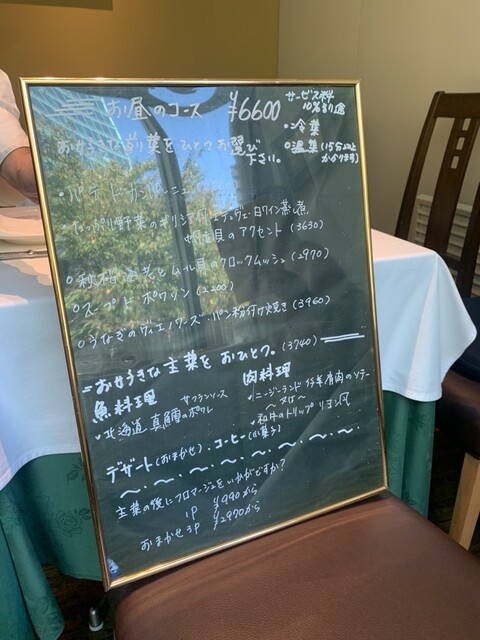 お昼のコース ¥6600
サービス料
10%別途
・冷菜
○温菜(15分以上
かかります)
お好きな前菜をひとつお選び
下さい。
・パテ ド カンパーニュ
・たっぷり野菜のギリシア風 白ワイン蒸し煮
貝のアクセント(3630)
○ 海老とムール貝のクロックムッシュ(2970)
○スープ ド ポワソン(2200)
○うなぎのヴィエノワーズ パン粉付け焼き(3960)
=お好きな主菜をおひとつ。(3740)
魚料理
サフランソース
・北海道 真鯛のポワレ
肉料理
・ニュージーランド 仔羊肩肉のソテー
〜又は〜
・和牛のトリップ リヨン風
デザート(おまかせ)・コーヒー(小菓子)
主菜の後にフロマージュをいかがですか?
1P ¥990から
おまかせ3P ¥2970から